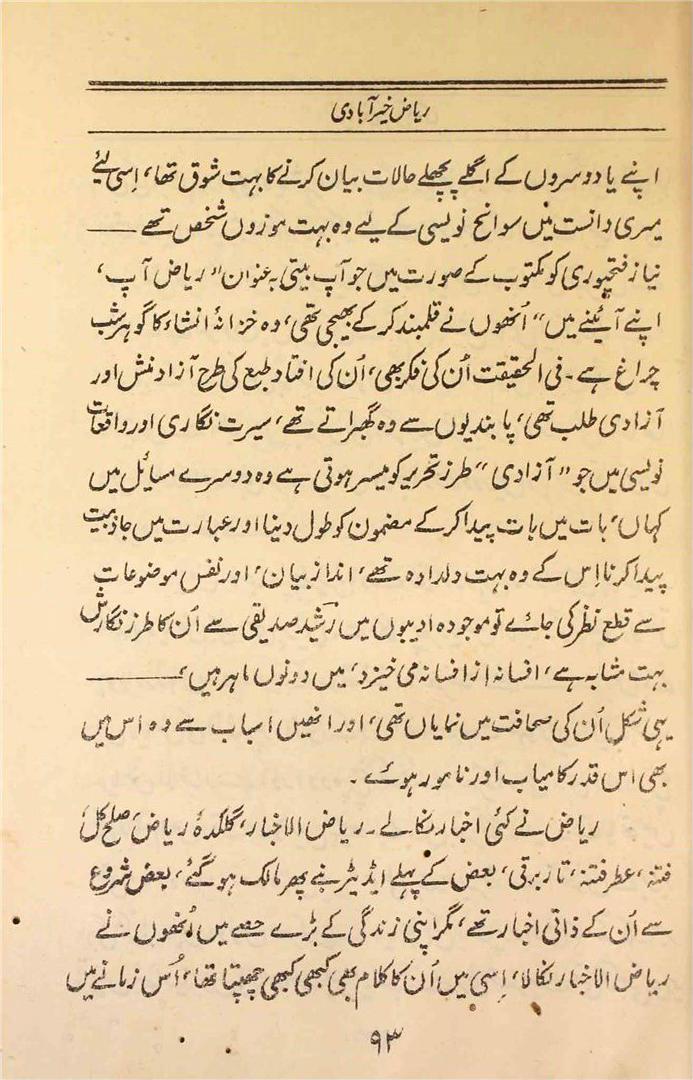 ریاض خیرآبادی
اپنے یا دوسروں کے اگلے پچھلے حالات بیان کرنے کا بہت شوق تھا، اِسی لئے
میری دانست میں سوانح نویسی کے لیے وہ بہت موزوں شخص تھے ——
نیاز فتحپوری کو مکتوب کے صورت میں جو آپ بیتی بہ عنوان "ریاض آپ،
اپنے آئینے میں" اُنھوں نے قلمبند کر کے بھیجی تھی، وہ خزانۂ انشاء کا گوہر شب
چراغ ہے۔ فی الحقیقت اُن کی فکر بھی، اُن کی افتاد طبع کی طرح آزاد منش اور
آزادی طلب تھی، پابندیوں سے وہ گھبراتے تھے، سیرت نگاری اور واقعات
نویسی میں جو "آزادی" طرز تحریر کو میسر ہوتی ہے وہ دوسرے مسائل میں
کہاں، بات میں بات پیدا کر کے مضمون کو طول دینا اور عبارت میں جاذبیت
پیدا کرنا اِس کے وہ بہت دلدادہ تھے، انداز بیان، اور نفس موضوعات
سے قطع نظر کی جائے تو موجودہ ادیبوں میں رشید صدیقی سے اُن کا طرز نگارش
بہت مشابہ ہے، افسانہ از افسانہ می خیزد، میں دونوں ماہر ہیں، ——
یہی شکل اُن کی صحافت میں نمایاں تھی، اور انھیں اسباب سے وہ اس میں
بھی اس قدر کامیاب اور نامور ہوئے۔
ریاض نے کئی اخبار نکالے۔ ریاض الاخبار، گلکدۂ ریاض، صلح کل،
فتنہ، عطر فتنہ، تار برقی، بعض کے پہلے ایڈیٹر بنے پھر مالک ہو گئے، بعض شروع
سے اُن کے ذاتی اخبار تھے، مگر اپنی زندگی کے بڑے حصے میں اُنھوں نے
ریاض الاخبار نکالا، اِسی میں اُن کا کلام بھی کبھی کبھی چھپتا تھا، اُس زمانے میں
۹۳